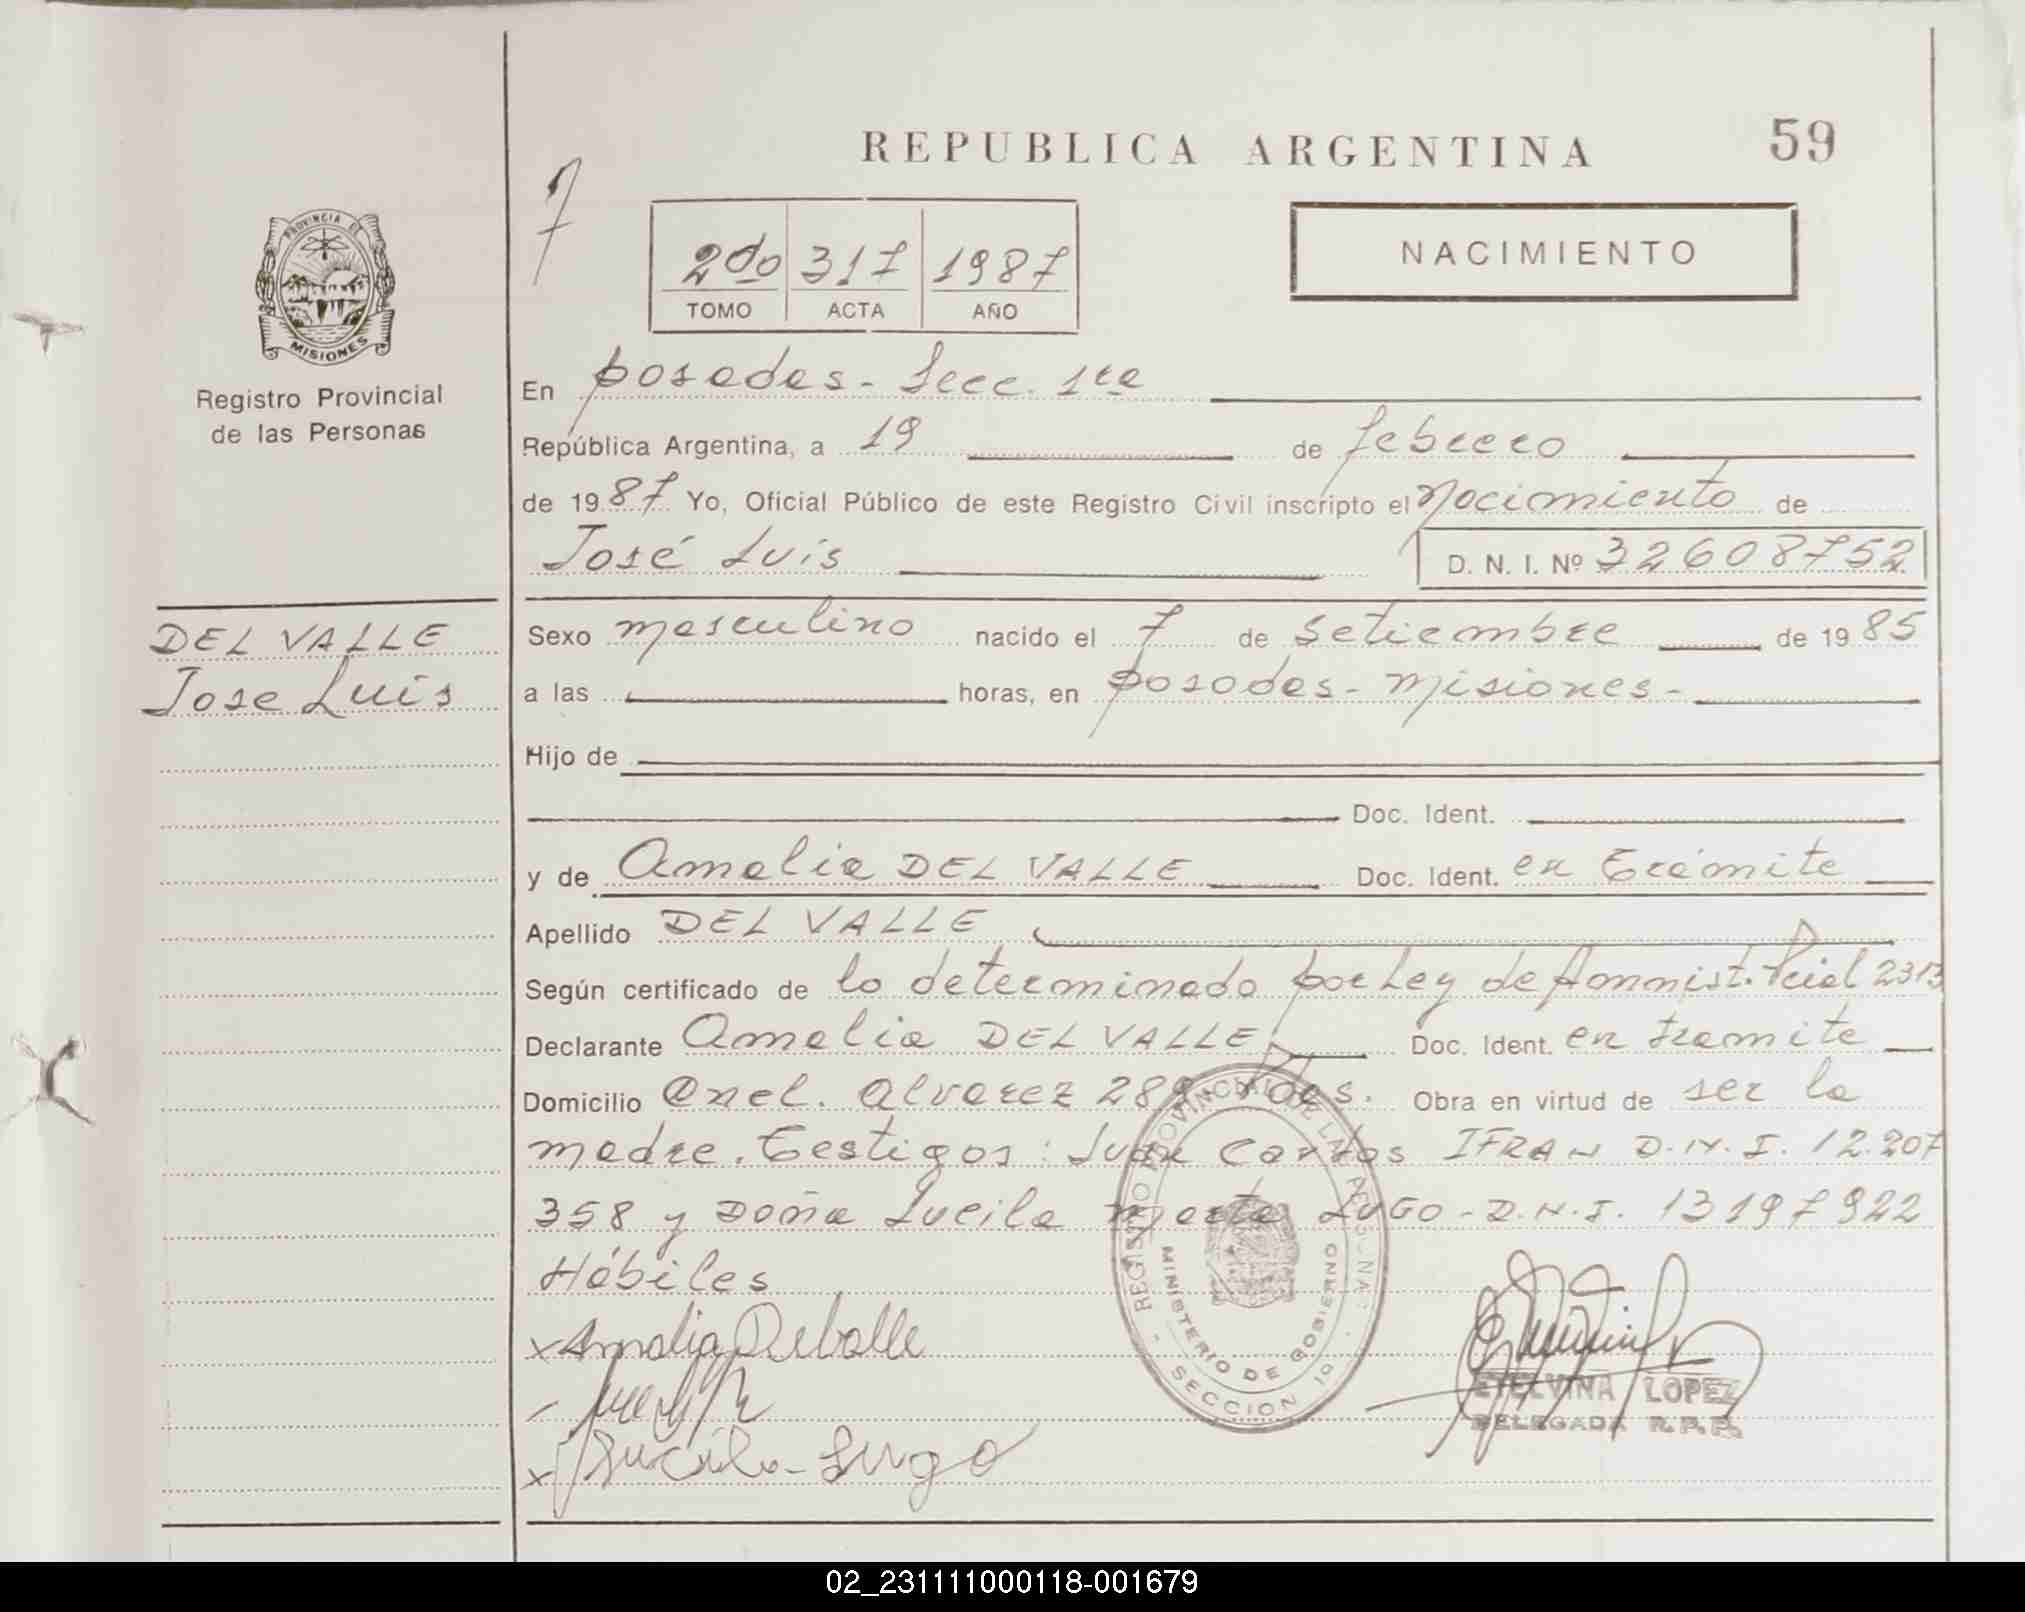 REPUBLICA ARGENTINA
59
7
2do 317 1987
TOMO ACTA AÑO
NACIMIENTO
PROVINCIA DE
MISIONES
Registro Provincial
de las Personas
DEL VALLE
Jose Luis
En posadas - Secc. 1ra
República Argentina, a 19 de febrero
de 1987 Yo, Oficial Público de este Registro Civil inscripto el Nacimiento de
José Luis D. N. I. Nº 32608752
Sexo masculino nacido el 7 de setiembre de 1985
a las horas, en posadas - misiones -
Hijo de
Doc. Ident.
y de Amalia DEL VALLE Doc. Ident. en trámite
Apellido DEL VALLE
Según certificado de lo determinado por Ley de Amnist. Pcial 2313
Declarante Amalia DEL VALLE Doc. Ident. en tramite
Domicilio Cnel. Alvarez 289 - Pdas. Obra en virtud de ser la
madre. Testigos: Juan Carlos IFRAN D.N.I. 12.207
358 y Doña Lucila Marta LUGO - D.N.I. 13197922
Hábiles
x Amalia Delballe
x Lucila - Lugo
REGISTRO PROVINCIAL DE LAS PERSONAS
MINISTERIO DE GOBIERNO
- SECCION 1º -
ETELVINA LOPEZ
DELEGADA R.P.P.
02_231111000118-001679